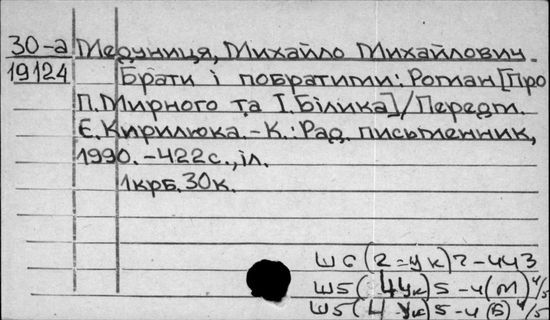 30-а Медуниця, Михайло Михайлович.
19124 Брати і побратими: Роман [Про
П.Мирного та І.Білика]/Передм.
Є.Кирилюка.-К.: Рад. письменник,
1990.-422с., іл.
1крб.30к.
Ш6(2=Ук)7-443
Ш5(4Ук)5-4(М) 4/5
Ш5(4Ук)5-4(Б) 4/5